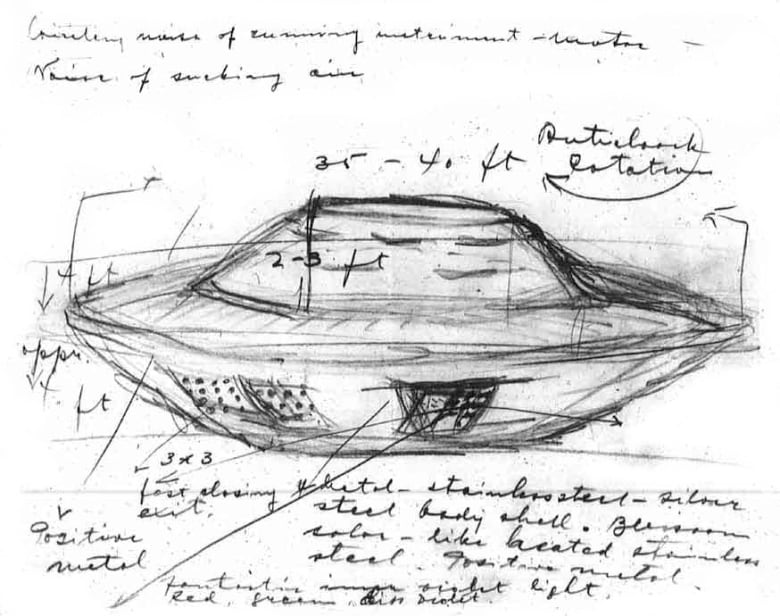 noise of running instrument - motor -
Noise of sucking air
Anticlock
rotation
35 - 40 ft
2-3 ft
4 ft
appr.
4 ft
3 x 3
fast closing
exit.
Positive
metal
metal - stainless steel - silver
steel body shell.
color - like heated stainless
steel. Positive metal.
fantastic violet light.
red, green, violet.